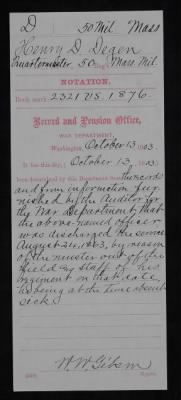 D 50 Mil. Mass
Henry D. Degen
Quartermaster, 50 Reg't Mass. Mil.
NOTATION.
Book mark: 2321 VS. 1876.
Record and Pension Office,
WAR DEPARTMENT,
Washington, October 13, 1903.
It has this day, October 13, 1903,
been determined by this Department from the records
and from information fur-
nished by the Auditor for
the War Department, that
the above-named officer
was discharged the service
August 24, 1863, by reason
of the muster out of the
field and staff of his
regiment on that date,
he being at the time absent
sick.
W. W. Gibson
Copyist.